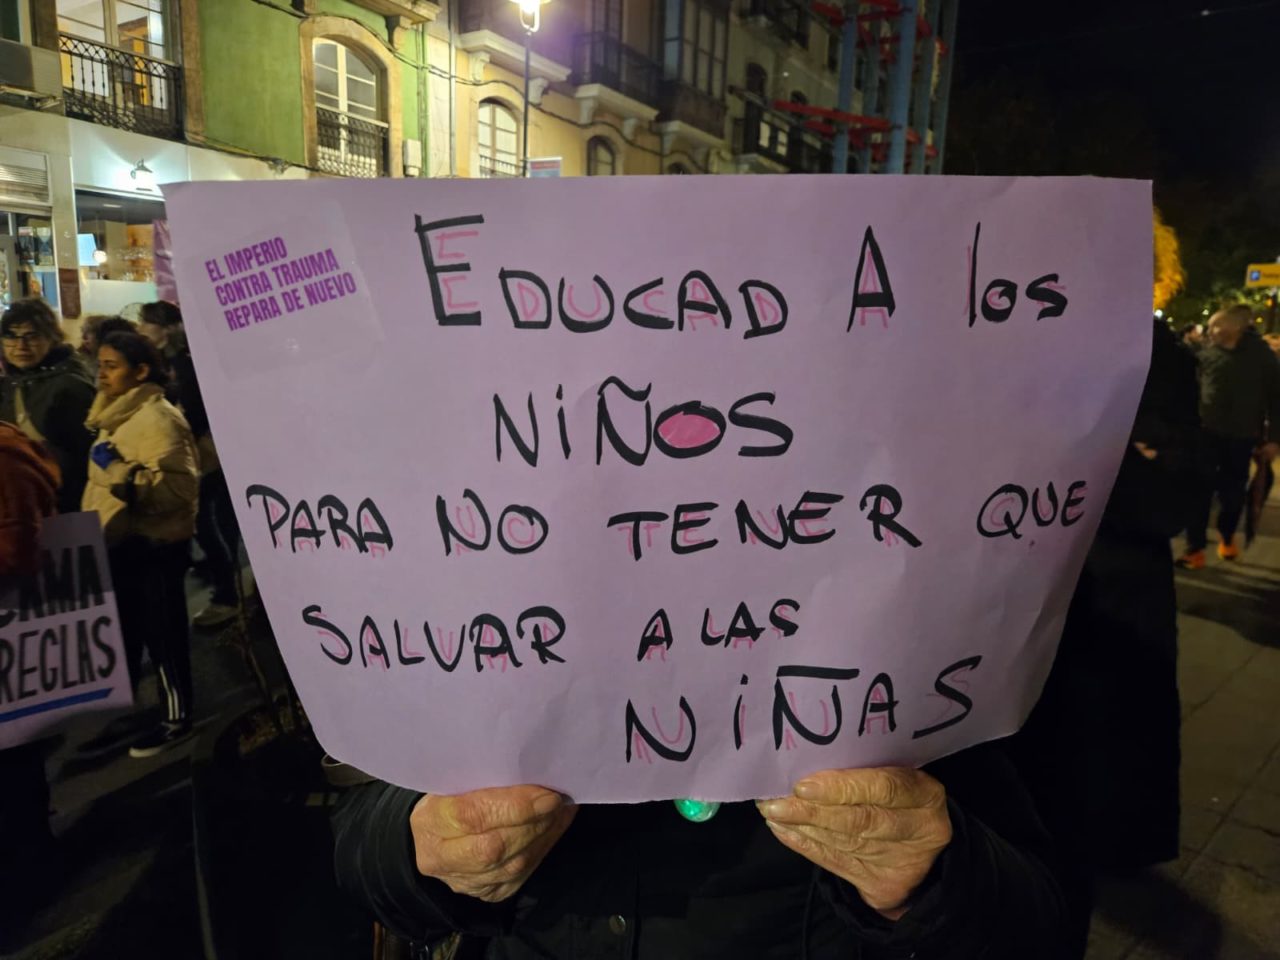 EL IMPERIO
CONTRA TRAUMA
REPARA DE NUEVO
EDUCAD A los
NiÑOS
PARA NO TENER QUE
SALVAR A LAS
NiÑAS
REGLAS